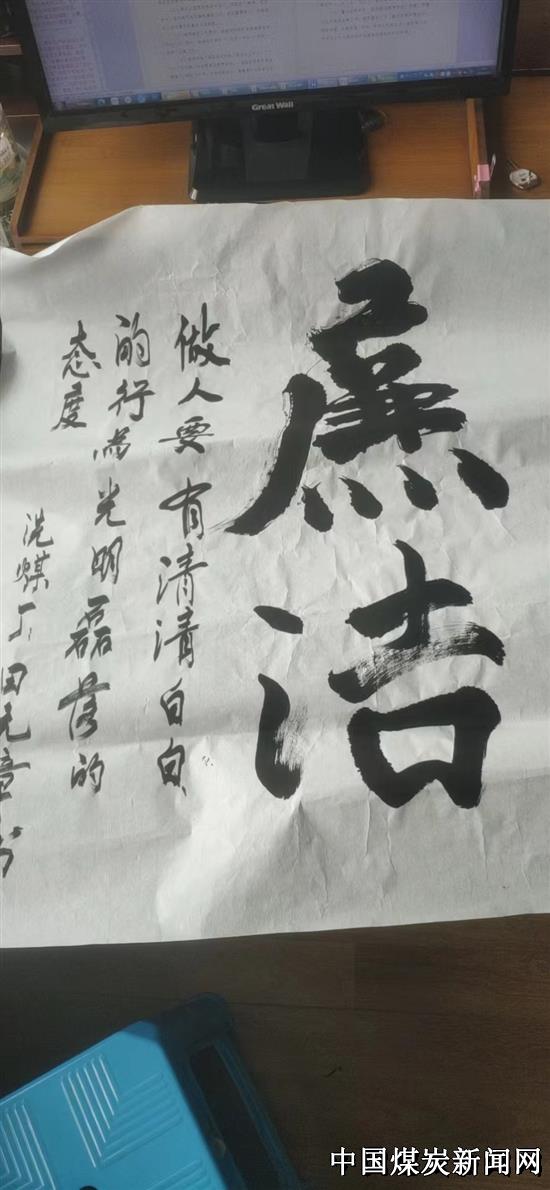 Great Wall
廉洁
做人要有清清白白
的行为光明磊落的
态度
洗煤厂田元章书
中国煤炭新闻网